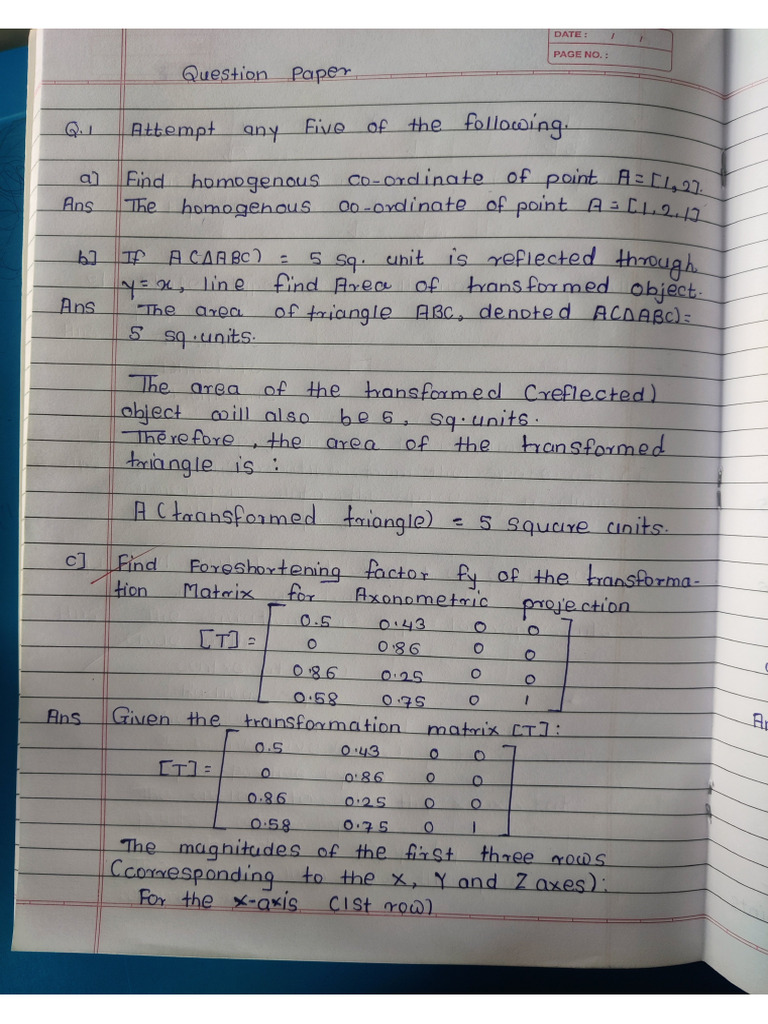 DATE : / /
PAGE NO. :
Question Paper
Q.1 Attempt any Five of the following.
a] Find homogenous co-ordinate of point A=[1,2].
Ans The homogenous co-ordinate of point A=[1,2,1]
b] If A(△ABC) = 5 sq. unit is reflected through
y=x, line find Area of transformed object.
Ans The area of triangle ABC, denoted A(△ABC)=
5 sq.units.
The area of the transformed (reflected)
object will also be 5, sq.units.
Therefore, the area of the transformed
triangle is :
A (transformed triangle) = 5 square units.
c] Find Foreshortening factor fy of the transforma-
tion Matrix for Axonometric projection
[T] = [ 0.5 0.43 0 0
0 0.86 0 0
0.86 0.25 0 0
0.58 0.75 0 1 ]
Ans Given the transformation matrix [T]:
[T] = [ 0.5 0.43 0 0
0 0.86 0 0
0.86 0.25 0 0
0.58 0.75 0 1 ]
The magnitudes of the first three rows
(corresponding to the X, Y and Z axes):
For the x-axis (1st row)